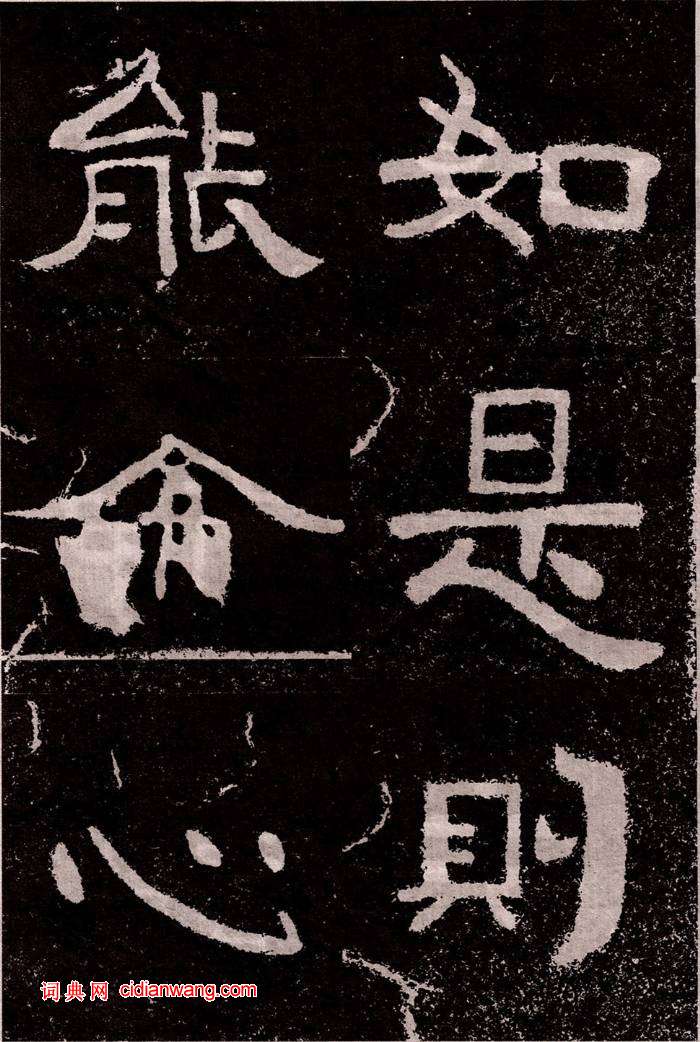 如是則
能心
词典网 cidianwang.com